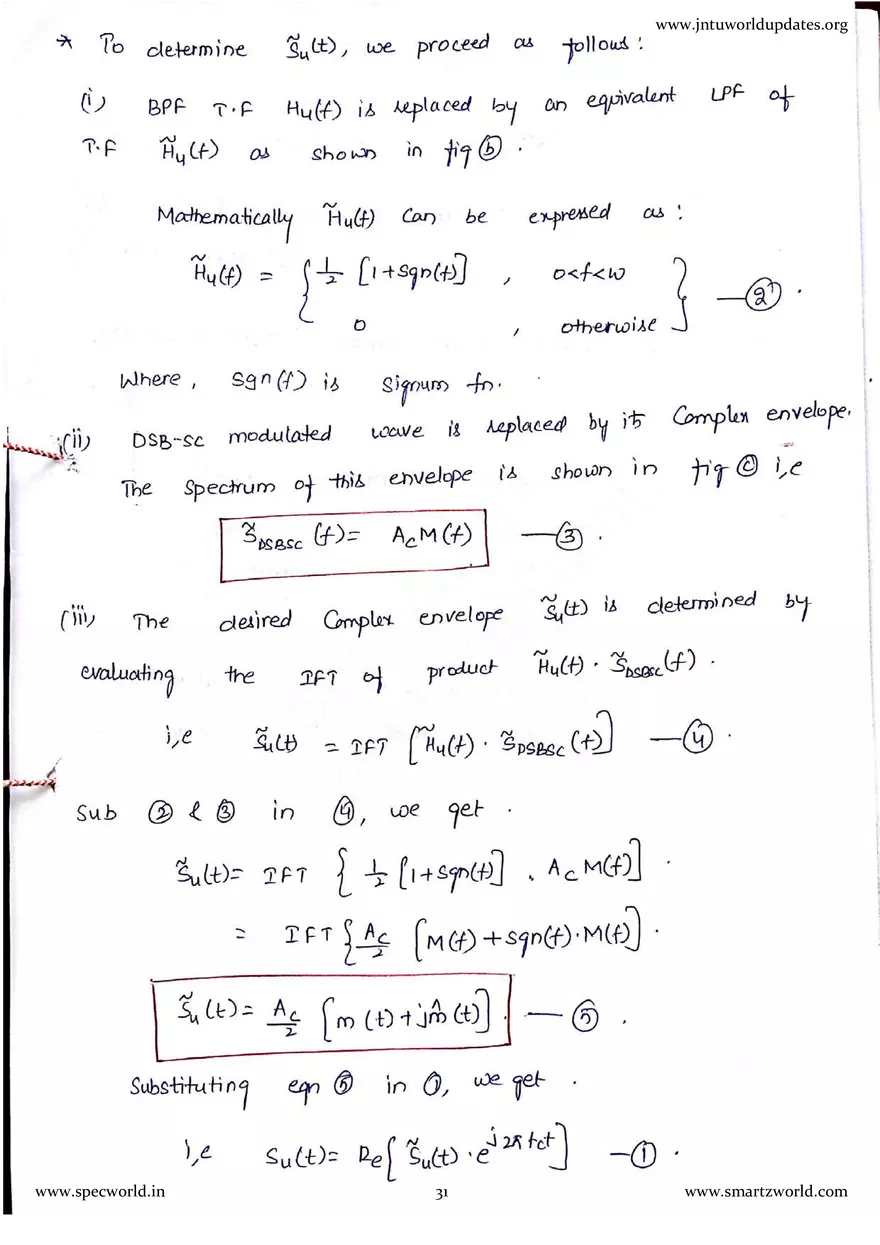 www.jntuworldupdates.org
* To determine S̃u(t), we proceed as follows :
(i) BPF T.F Hu(f) is replaced by an equivalent LPF of
T.F H̃u(f) as shown in fig ⓑ .
Mathematically H̃u(f) can be expressed as :
H̃u(f) = { 1/2 [1+sgn(f)] , 0<f<w
0 , otherwise } —②.
Where, sgn(f) is signum fn.
(ii) DSB-SC modulated wave is replaced by its Complex envelope.
The spectrum of this envelope is shown in fig ⓒ i,e
S̃DSBSC (f) = AcM(f) —③ .
(iii) The desired Complex envelope S̃u(t) is determined by
evaluating the IFT of product H̃u(f) . S̃DSBSC(f) .
i,e S̃u(t) = IFT [H̃u(f) . S̃DSBSC (f)] —④ .
Sub ② & ③ in ④, we get .
S̃u(t) = IFT { 1/2 [1+sgn(f)] . AcM(f)] .
= IFT { Ac/2 [M(f) + sgn(f).M(f)] .
S̃u(t) = Ac/2 [m(t) + jm̂(t)] . —⑤ .
Substituting eqn ⑤ in ①, we get .
i,e Su(t) = Re[ S̃u(t) . e^j2πfct ] —① .
www.specworld.in 31 www.smartzworld.com